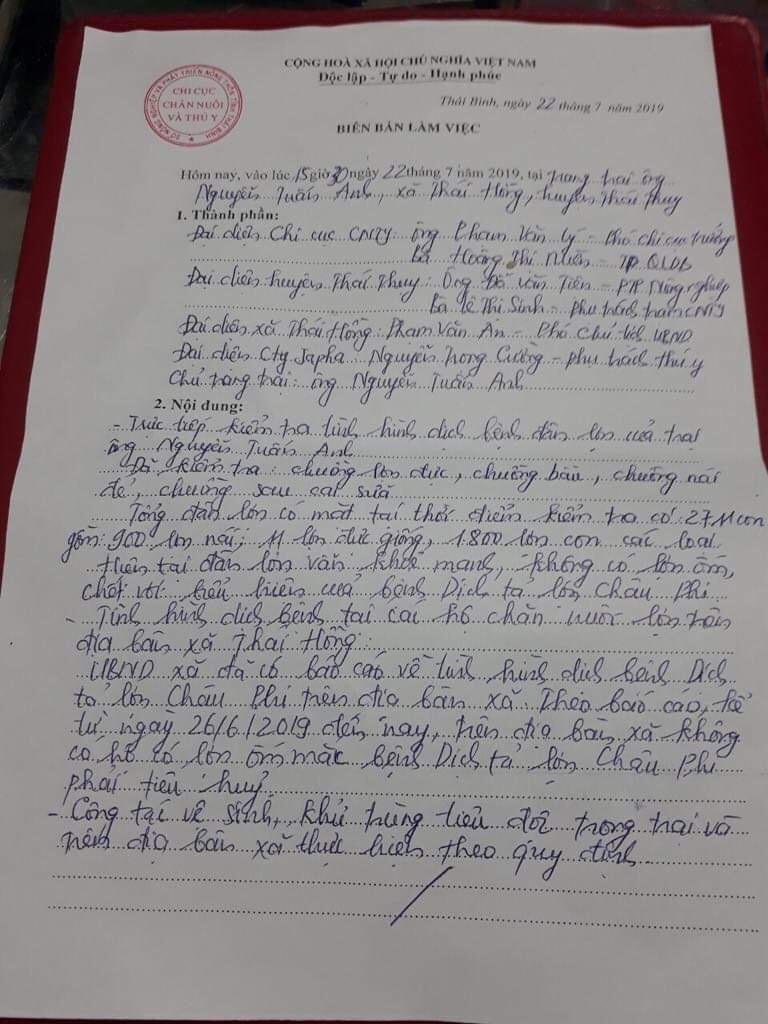 CỘNG HOÀ XÃ HỘI CHỦ NGHĨA VIỆT NAM
Độc lập - Tự do - Hạnh phúc
SỞ NÔNG NGHIỆP VÀ PHÁT TRIỂN NÔNG THÔN TỈNH THÁI BÌNH
CHI CỤC
CHĂN NUÔI
VÀ THÚ Y
Thái Bình, ngày 22 tháng 7 năm 2019
BIÊN BẢN LÀM VIỆC
Hôm nay, vào lúc 15 giờ 30 ngày 22 tháng 7 năm 2019, tại trang trại ông
Nguyễn Tuấn Anh, xã Thái Hồng, huyện Thái Thụy
1. Thành phần:
Đại diện Chi cục CNTY: ông Phạm Văn Lý - Phó chi cục trưởng
Bà Hoàng Thị Nhiên - TP QLDB
Đại diện huyện Thái Thụy: Ông Đỗ Văn Tiến - PTP Nông nghiệp
Bà Lê Thị Sinh - Phụ trách trạm CNTY
Đại diện xã Thái Hồng: Phạm Văn Ân - Phó Chủ tịch UBND
Đại diện Cty Japha: Nguyễn Trọng Cường - phụ trách thú y
Chủ trang trại: ông Nguyễn Tuấn Anh
2. Nội dung:
- Trực tiếp kiểm tra tình hình dịch bệnh đàn lợn của trại
ông Nguyễn Tuấn Anh
Đã kiểm tra: chuồng lợn đực, chuồng bầu, chuồng nái
đẻ, chuồng sau cai sữa
Tổng đàn lợn có mặt tại thời điểm kiểm tra có: 2711 con
gồm: 900 lợn nái; 11 lợn đực giống, 1.800 lợn con các loại
Hiện tại đàn lợn vẫn khoẻ mạnh, không có lợn ốm,
chết với biểu hiện của bệnh Dịch tả lợn Châu Phi
- Tình hình dịch bệnh tại các hộ chăn nuôi lợn trên
địa bàn xã Thái Hồng:
UBND xã đã có báo cáo về tình hình dịch bệnh Dịch
tả lợn Châu Phi trên địa bàn xã. Theo báo cáo, kể
từ ngày 26/6/2019 đến nay, trên địa bàn xã không
có hộ có lợn ốm mắc bệnh Dịch tả lợn Châu Phi
phải tiêu huỷ
- Công tác vệ sinh, khử trùng tiêu độc trong trại và
trên địa bàn xã thực hiện theo quy định